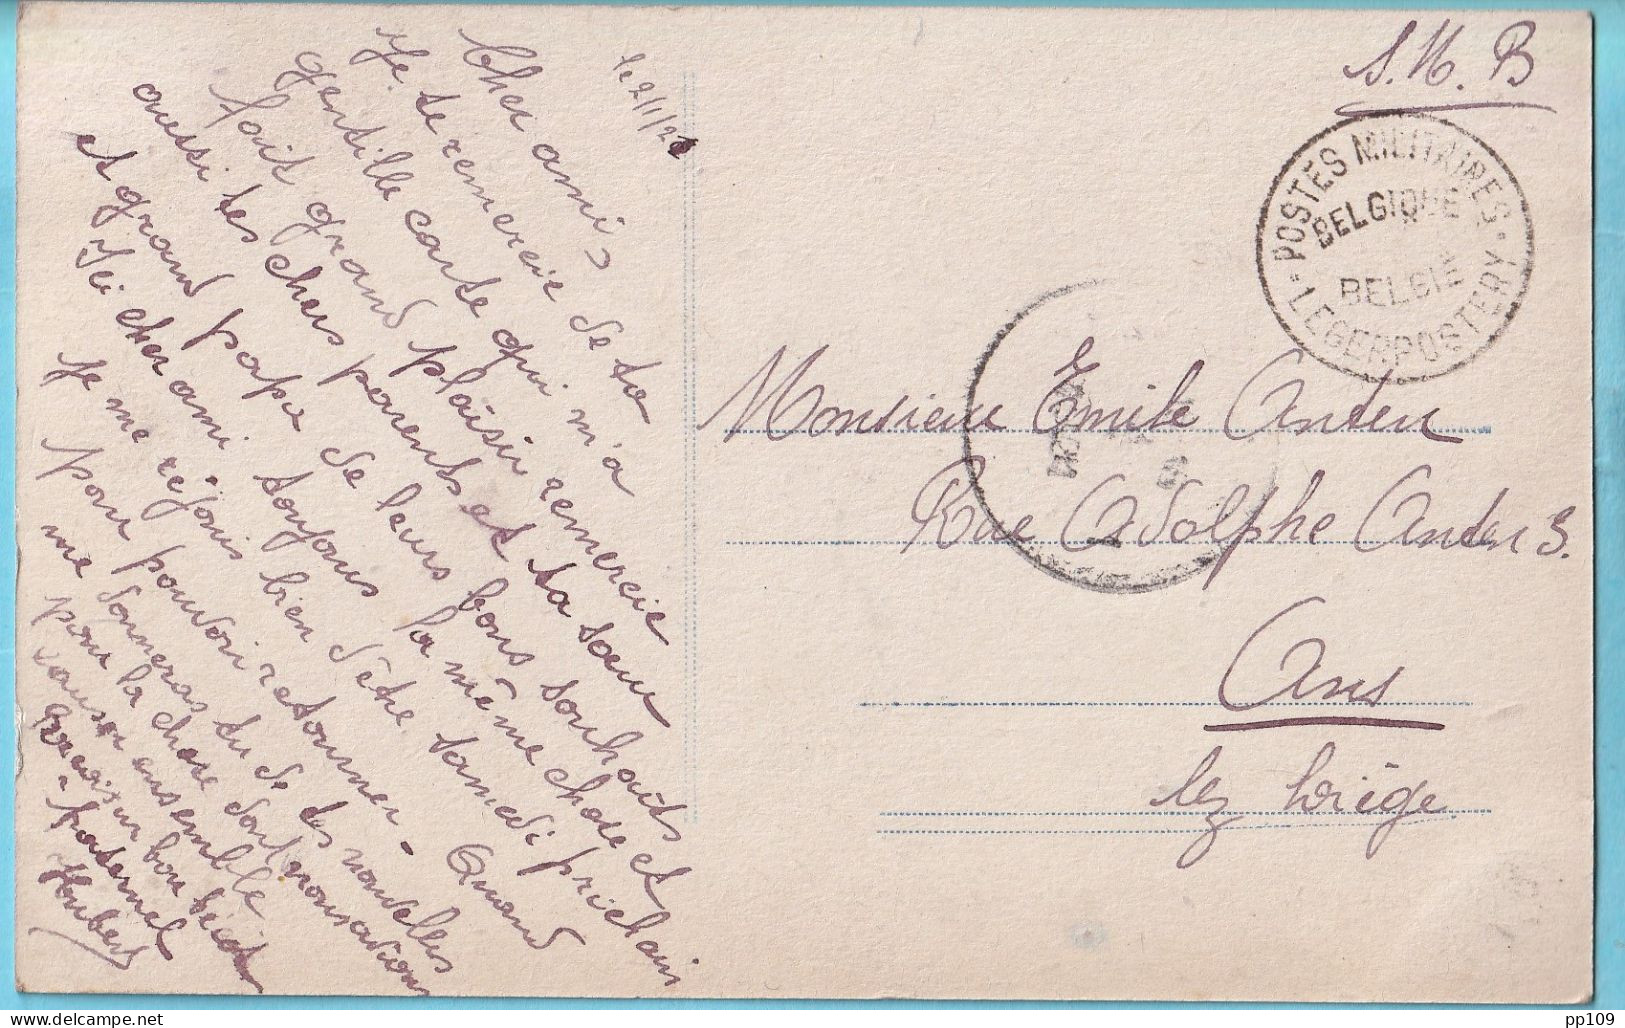 le 2/1/21
Cher amis
Je te remercie de ta
gentille carte qui m'a
fait grand plaisir remercie
aussi tes chers parents et ta sœur
et grand papa de leurs bons souhaits
Ici cher ami toujours la même chose et
Je me réjouis bien d'être samedi prichain
pour pouvoir retourner. Quand
me donneras tu de tes nouvelles
pour la chose dont nous avions
causer ensemble
un bon
Hubert
S. M. B
POSTES MILITAIRES
BELGIQUE
BELGIE
LEGERPOSTERY
Monsieur Emile Anten
Rue Adolphe Anten 3.
Ans
lez Liège
pp109